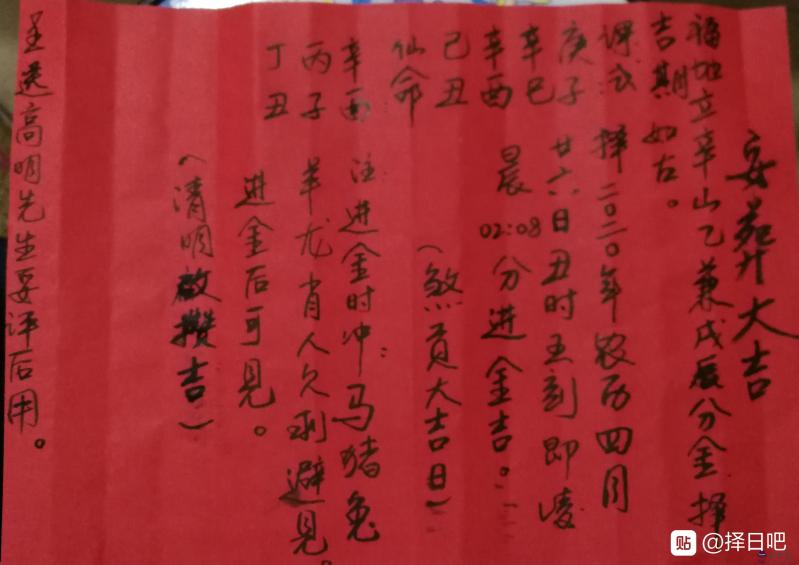 安葬大吉
福地立辛山乙兼戌辰分金择
吉期如右。
课式 择二〇二〇年农历四月
庚子 廿六日丑时五刻即凌
辛巳 晨02:08分进金吉。
辛酉
己丑 (煞贡大吉日)
仙命
辛酉 注:进金时冲:马猪兔
丙子 羊龙肖人欠利避见。
丁丑 进金后可见。
(清明攒吉)
呈送高明先生要评后用。
贴 @择日吧